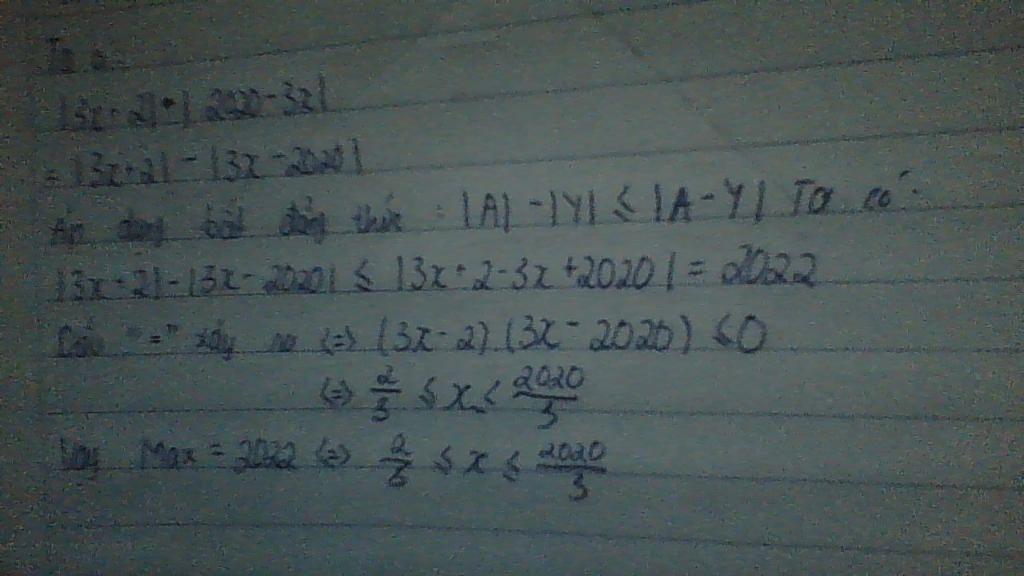 Ta có
|3x+2| - |2020-3x|
= |3x+2| - |3x-2020|
Áp dụng bất đẳng thức : |A| - |Y| ≤ |A-Y| Ta có:
|3x+2| - |3x-2020| ≤ |3x+2-3x+2020| = 2022
Dấu "=" xảy ra <=> (3x-2).(3x-2020) ≤ 0
<=> 2/3 ≤ x ≤ 2020/3
Vậy Max = 2022 <=> 2/3 ≤ x ≤ 2020/3